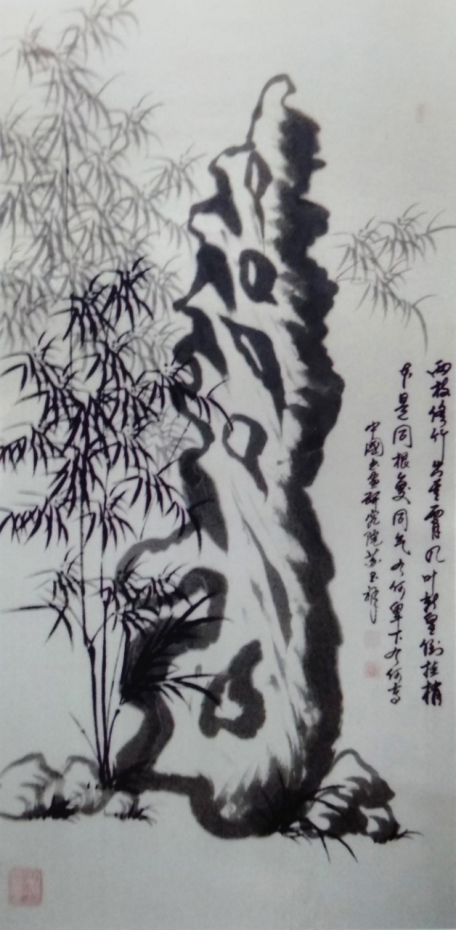 两枝修竹出重霄几叶新篁倒挂梢
本是同根复同气有何卑下有何高
中國书画研究院